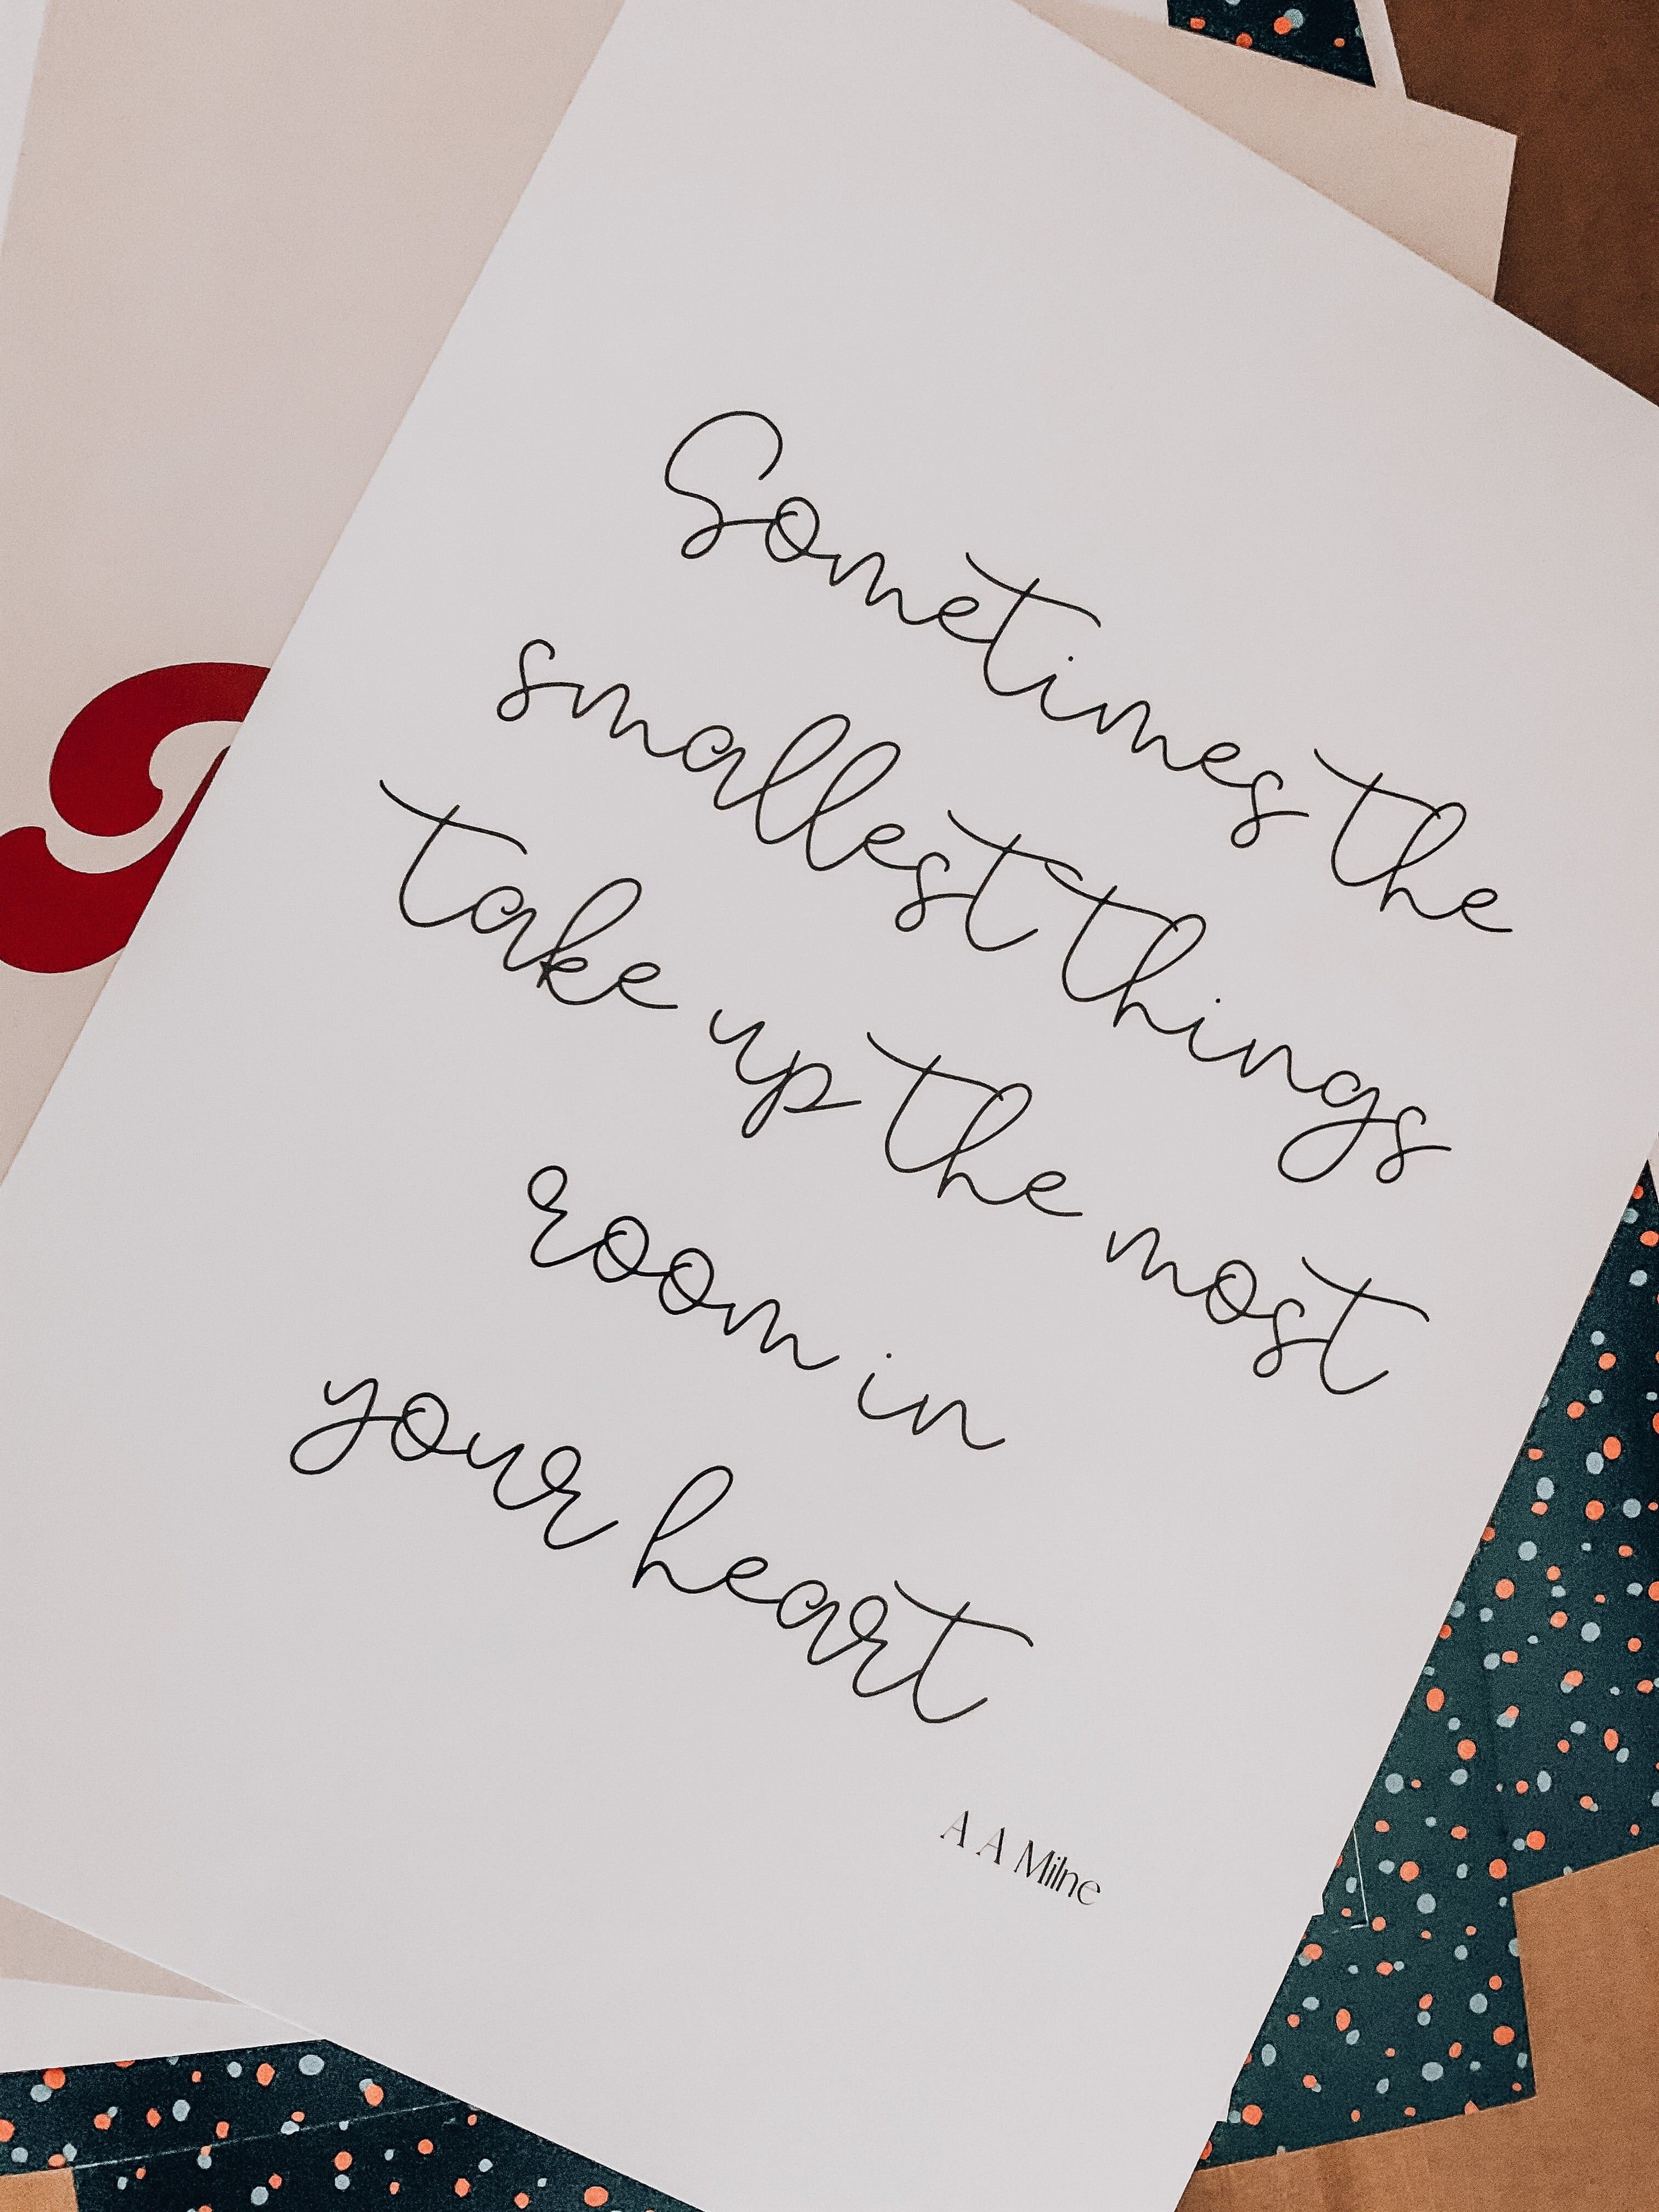 Sometimes the
smallest things
take up the most
room in
your heart
A A Milne